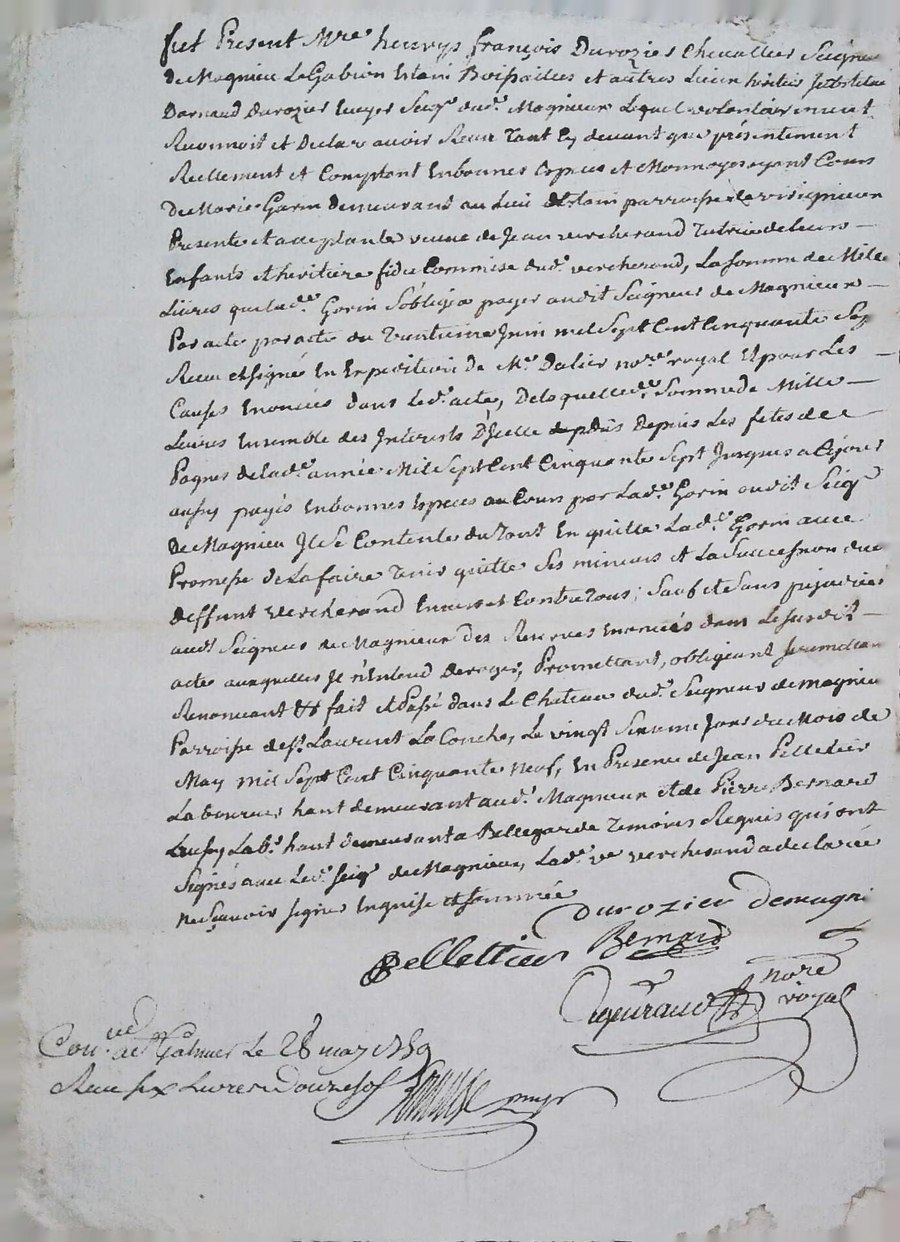 fut Present Mre henrys françois Durozier Chevallier Seigneur
De Magnieu Le Gabion Estain Boissailles et autres Lieux héritier
Bernard Durozier Ecuyer Seigr dud. Magnieux Lequel volontairement
Reconnoit et Declare avoir Receu Tant Cy devant que présentement
Reellement et Comptant En bonnes Espèces et Monnoyes ayant Cours
De Marie Gorin demeurant au Lieu parroisse
Presente et acceptante veuve de Jean vercherand Tutrice de leurs
Enfants et heritière fidu Commise dud. vercherand, La somme de Mille
Livres que lade Gorin s'obligea payer audit Seigneur de Magnieux
Par acte par acte du Juin mil Sept Cent Cinquante Sep
Receu et signé En Expedition de Me Dalier nore royal Et pour Les
Causes Enoncées dans Led. acte, De laquelle de Somme de Mille
Livres Ensemble des Intérêsts D'Jcelle Depuis Les fetes de
Paques de lade année Mil Sept Cent Cinquante Sept Jusques a Ce jour
aussy payés En bonnes Especes au Cours par Lade Gorin audit Seigr
De Magnieu Jl se Contente du Tout En quitte Lade Gorin avec
Promesse de La faire Tenir quitte Ses mineurs et La Succession du
deffunt vercherand Envers et Contre Tous; Sauf et Sans préjudice
audt Seigneur de Magnieux des Reserves Enoncées dans Le susdit
acte auxquelles Jl n'Entend deroger, Promettant, obligeant
Renonceant &a fait et Passé dans Le Chateau dud. Seigneur de magnieu
Parroisse de st Laurent La Conche, Le vingt Sixieme Jour du Mois de
May mil Sept Cent Cinquante Neuf, En Presence de Jean Pelletier
Laboureur hant demeurant aud. Magnieux et de Pierre Bernard
aussy Labr hant demeurant a Bellegarde Temoins Requis qui ont
Signés avec Led. Seigr de Magnieux, Lade ve vercherand a declarée
ne Scavoir signer Enquise et sommée
Durozier Demagni
Pelletier Bernard
nore
royal
Conue a st Galmier Le 28 may 1759
Receu six Livres Douze sols